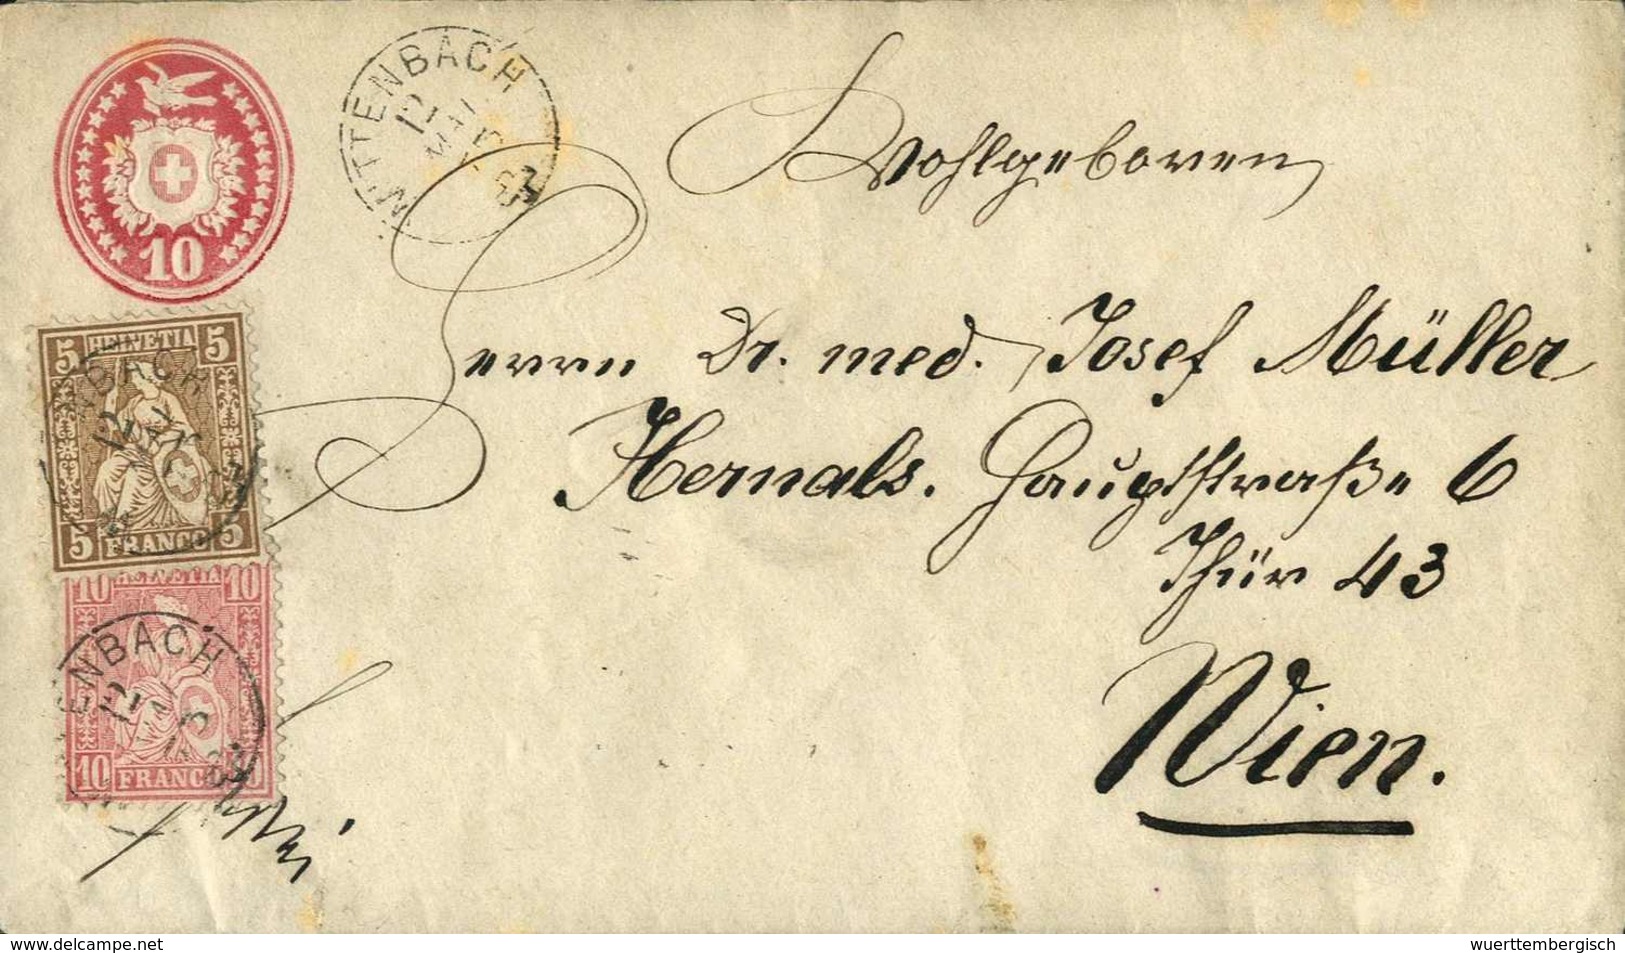 WITTENBACH
12
10
Wohlgeboren
HELVETIA
5 5
5 FRANCO 5
Herrn Dr. med. Josef Müller
Hernals. Hauptstraße 6
Thür 43
Wien.
10 HELVETIA 10
ENBACH
12
10 FRANCO 10
frei
www.delcampe.net
wuerttembergisch